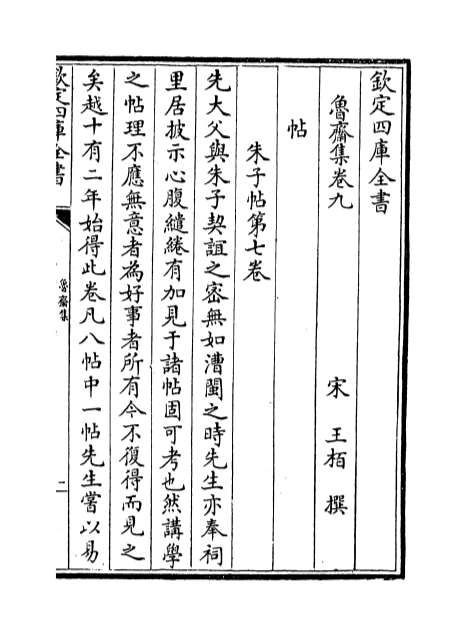 欽定四庫全書
魯齋集卷九
宋 王柏 撰
帖
朱子帖第七卷
先大父與朱子契誼之密無如漕閩之時先生亦奉祠
里居披示心腹繾綣有加見于諸帖固可考也然講學
之帖理不應無意者為好事者所有今不復得而見之
矣越十有二年始得此卷凡八帖中一帖先生嘗以易
欽定四庫全書
魯齋集